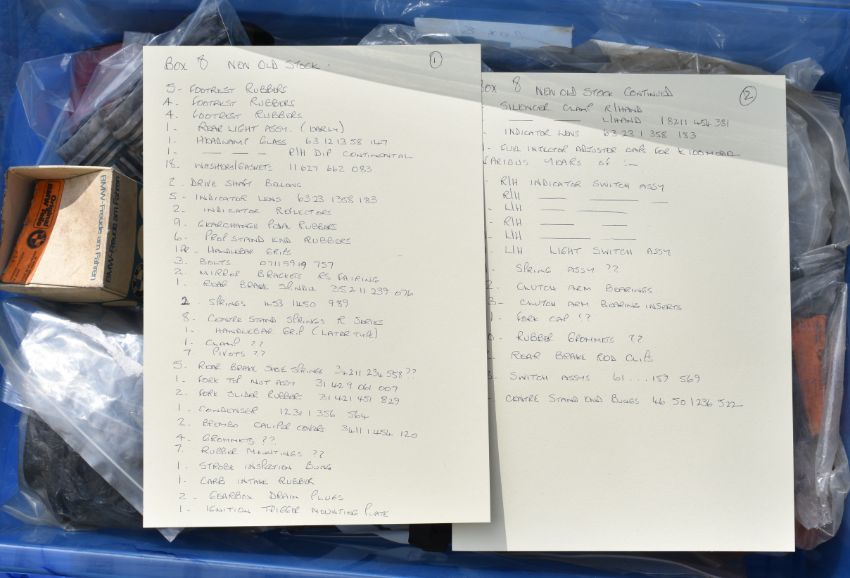 Box 8 NEW OLD STOCK.
①
5- FOOTREST RUBBERS
4- FOOTREST RUBBERS
4- FOOTREST RUBBERS
1- REAR LIGHT ASSY. (EARLY)
1- HEADLAMP GLASS 63 12 1 358 147
1- — — — R/H DIP CONTINENTAL
18- WASHERS/GASKETS 11 627 662 083
2- DRIVE SHAFT
5- INDICATOR LENS 63 23 1358 183
2- INDICATOR REFLECTORS
9- GEARCHANGE PEDAL RUBBERS
6- PROP STAND END RUBBERS
HANDLEBAR GRIPS
3- BOLTS 07119919 757
2- MIRROR BRACKETS RS FAIRING
1- REAR BRAKE SPINDLE 35 211 239 076
2 - SPRINGS 1453 1450 989
8- CENTRE STAND SPRINGS R SERIES
1- HANDLEBAR GRIP (LATER TYPE)
1- CLAMP ??
7 PIVOTS ??
5- REAR BRAKE SHOE SPRINGS 34211 234 558 ??
1- FORK TOP NUT ASSY 31 429 061 007
2- FORK SLIDER RUBBERS 31 421 451 829
1- CONDENSER 1231 1 356 564
2- BREMBO CALIPER COVERS 3411 1 454 120
4- GROMMETS ??
7- RUBBER MOUNTINGS ??
1- STROBE INSPECTION BUNG
1- CARB INTAKE RUBBER
2- GEARBOX DRAIN PLUGS
1- IGNITION TRIGGER MOUNTING PLATE
BOX 8 NEW OLD STOCK CONTINUED
②
SILENCER CLAMP R/HAND
— — L/HAND 18211 454 381
INDICATOR LENS 63 23 1 358 183
FUEL INJECTOR ADJUSTER CAPS FOR K100 MODEL
VARIOUS YEARS OF :-
- R/H INDICATOR SWITCH ASSY
R/H — — —
L/H — —
- R/H — —
- L/H — —
- L/H LIGHT SWITCH ASSY
- SPRING ASSY ??
2- CLUTCH ARM BEARINGS
3- CLUTCH ARM BEARING INSERTS
1- FORK CAP ??
RUBBER GROMMETS ??
2- REAR BRAKE ROD CLIPS
SWITCH ASSYS 61....157 569
- CENTRE STAND END BUNGS 46 50 1 236 522
Original
BMW Teile
BMW-Freude am Fahren